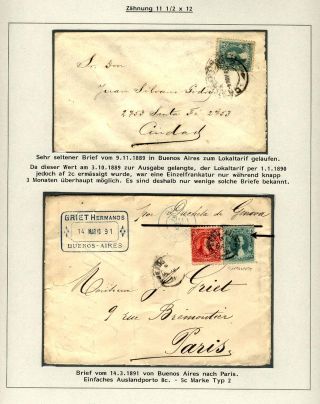 Zähnung 11 1/2 x 12
Sr. Don
Juan Silvano Godoy
2753 Santa Fé 2753
Ciudad
Sehr seltener Brief vom 9.11.1889 in Buenos Aires zum Lokaltarif gelaufen.
Da dieser Wert am 3.10.1889 zur Ausgabe gelangte, der Lokaltarif per 1.1.1890
jedoch af 2c ermässigt wurde, war eine Einzelfrankatur nur während knapp
3 Monaten überhaupt möglich. Es sind deshalb nur wenige solche Briefe bekannt.
GRIET HERMANOS
14 MARZO 91
BUENOS-AIRES
par Duchesa de Genova
Monsieur J. Griet
9 rue Bremontier
Paris
Brief vom 14.3.1891 von Buenos Aires nach Paris.
Einfaches Auslandporto 8c. - 5c Marke Typ 2